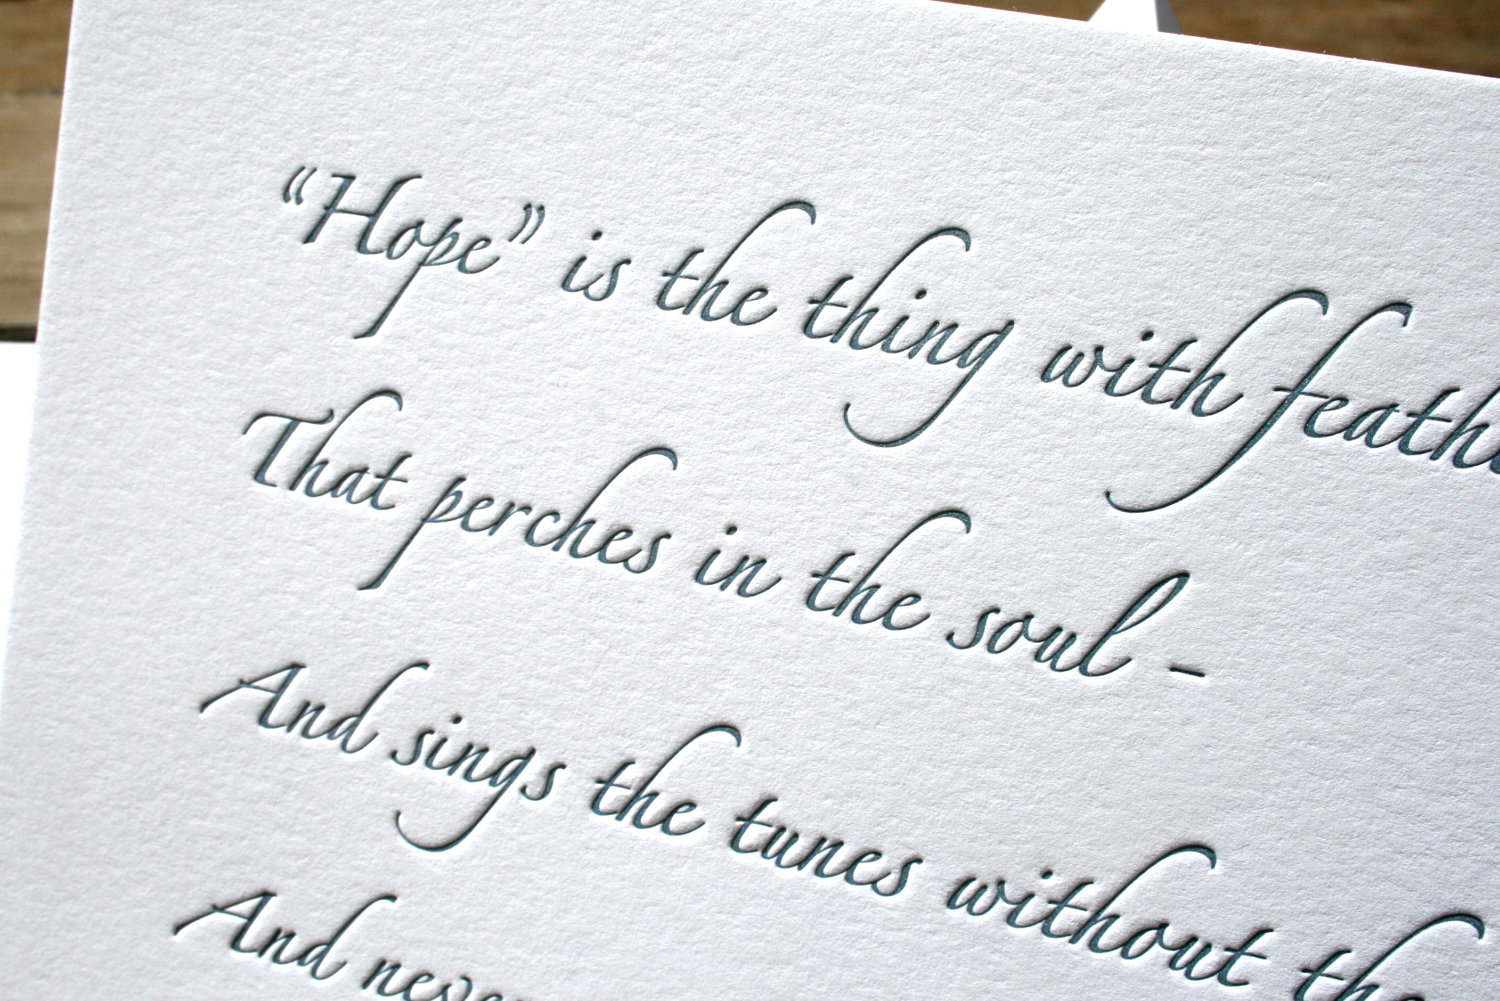 “Hope” is the thing with
That perches in the soul -
And sings the tunes without
And